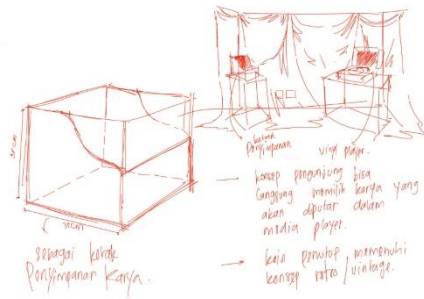 30cm
30cm
sebagai kotak
Penyimpanan karya.
kotak
Penyimpanan
vinyl player.
→ konsep pengunjung bisa
langsung memilih karya yang
akan diputar dalam
media player.
→ kain penutup memenuhi
konsep retro / vintage.